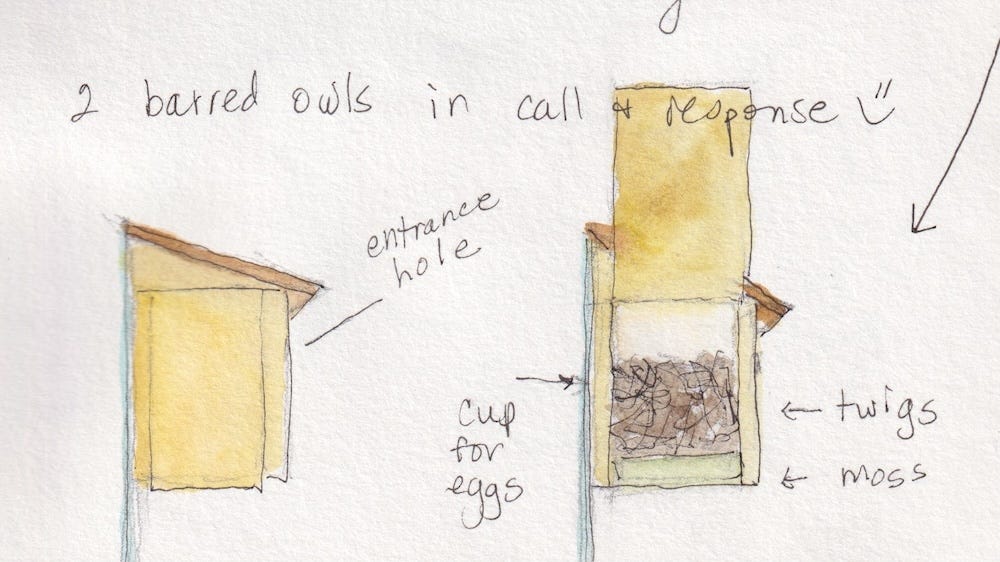 2 barred owls in call & response
entrance
hole
cup
for
eggs
← twigs
← moss